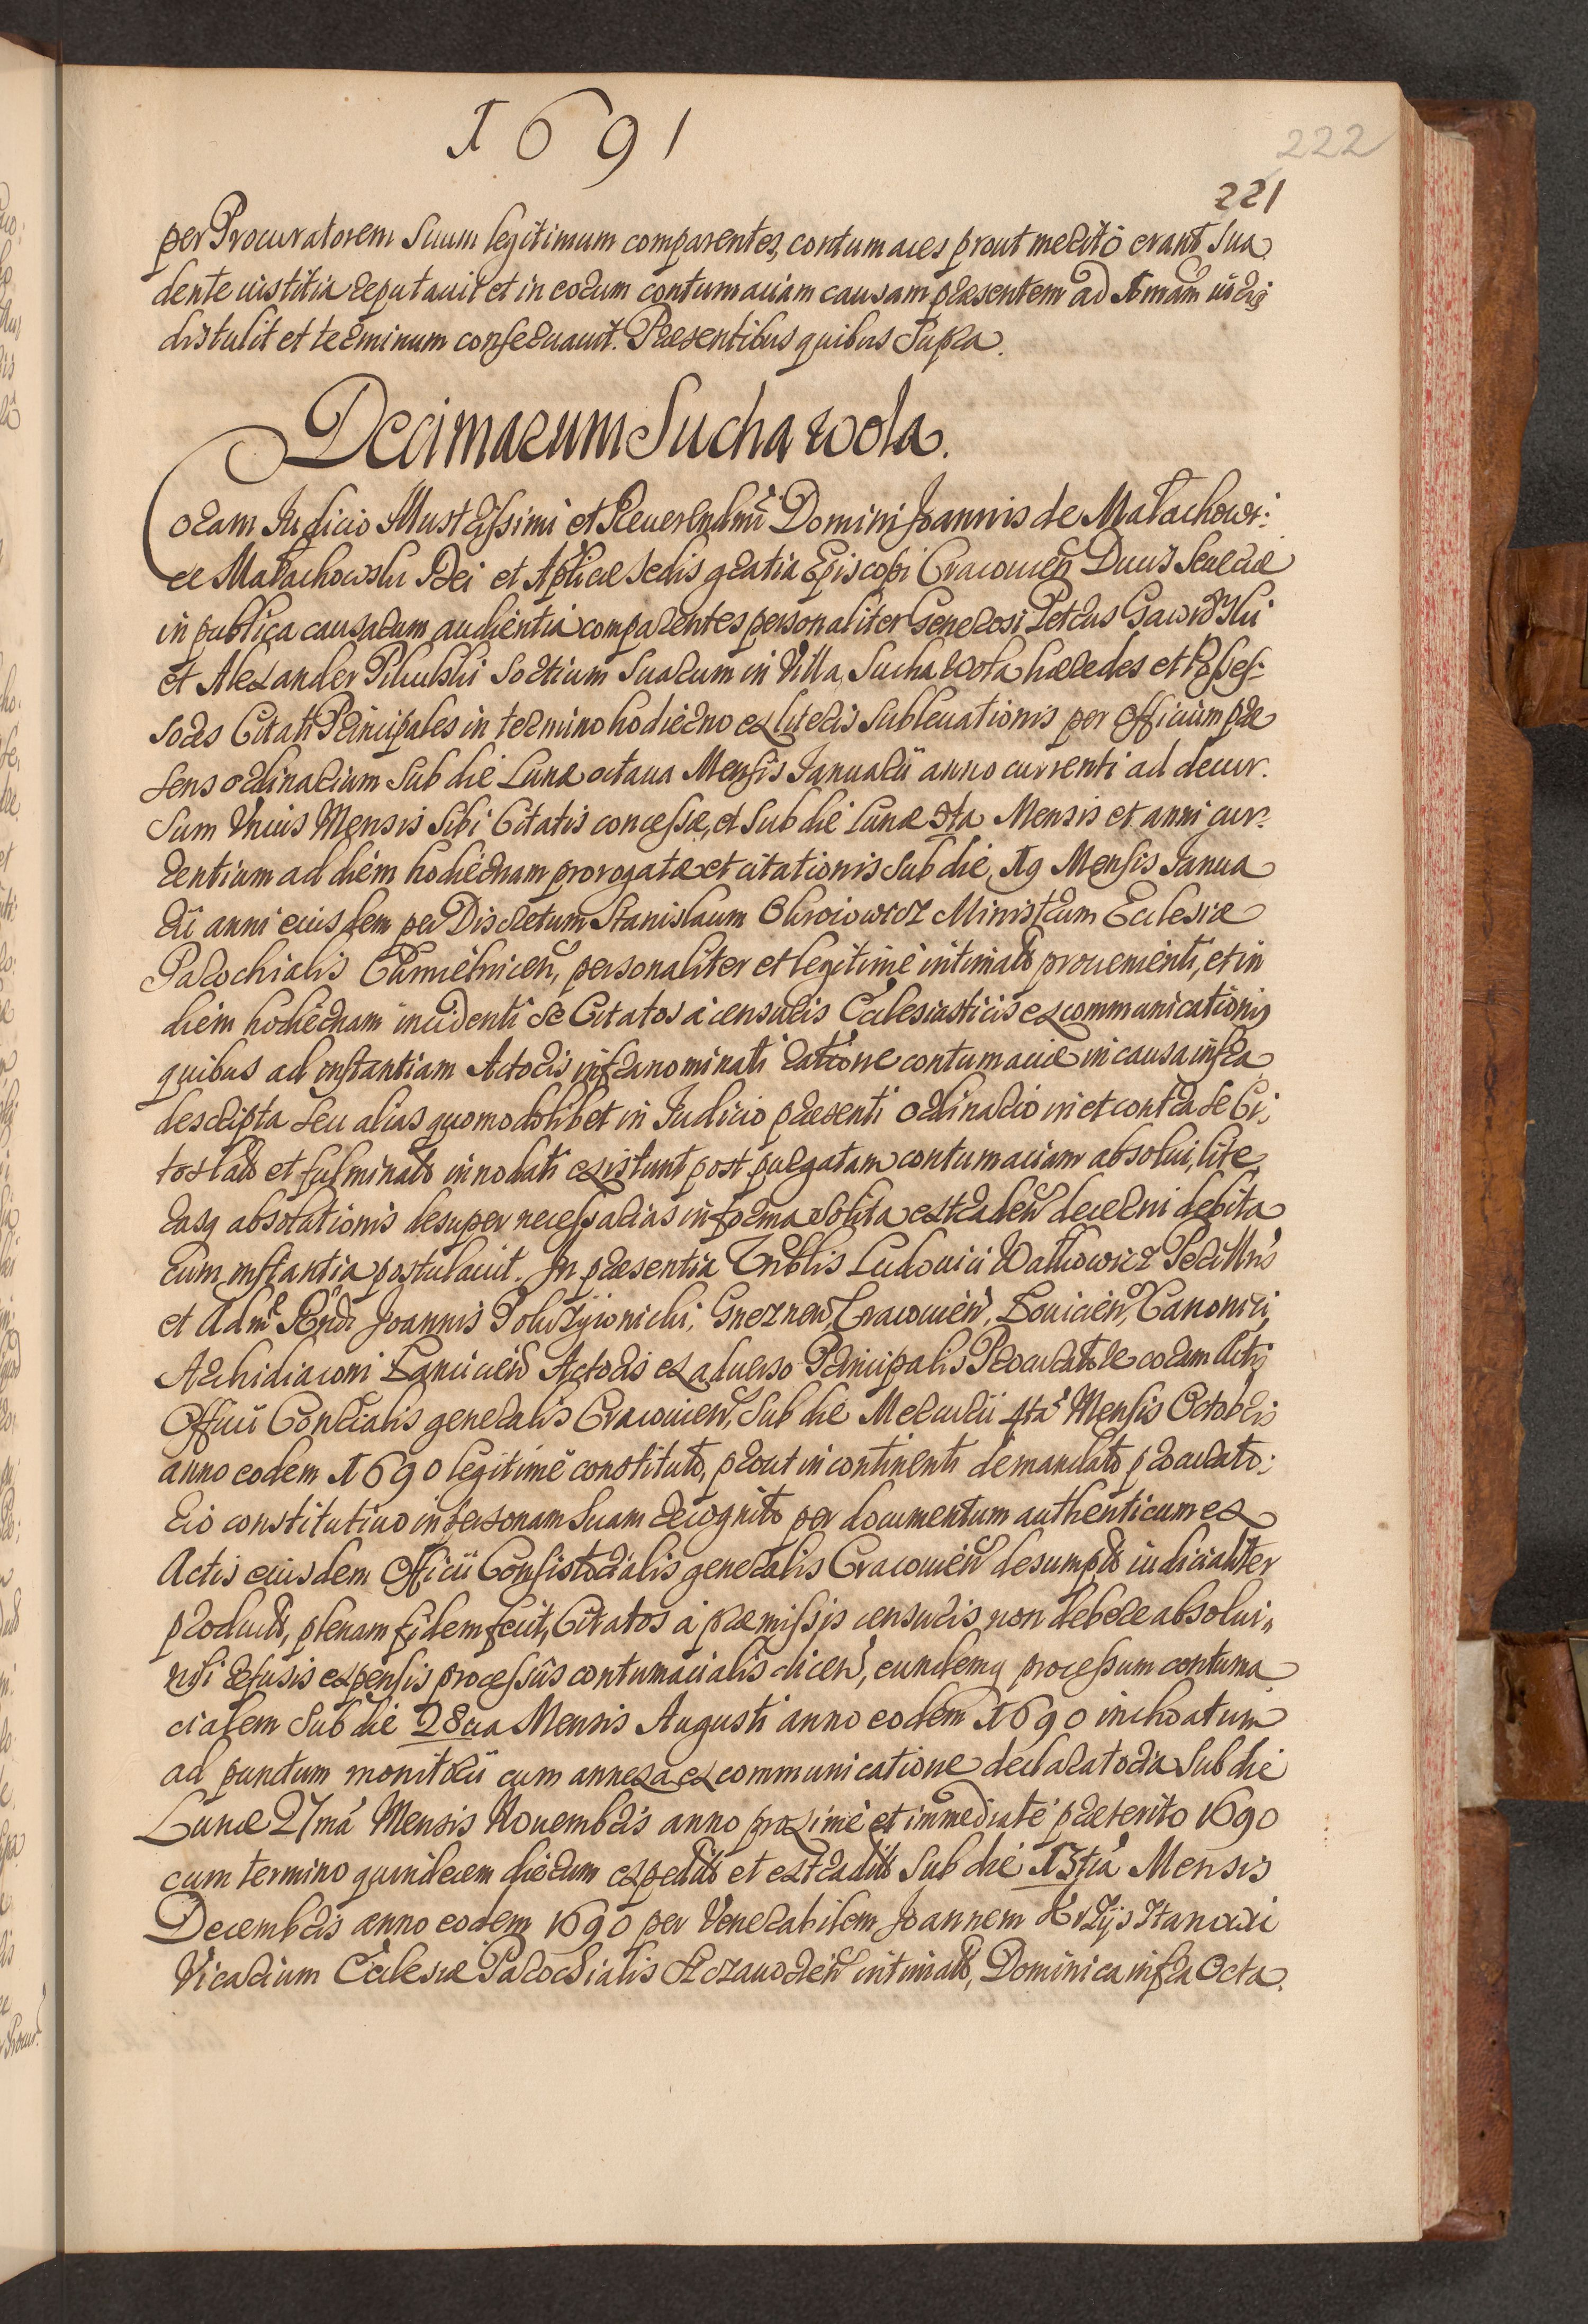 1691
222
221
per Procuratorem Suum legitimum comparentes, contumaces prout meritò erant, Sua
dente iustitia reputauit et in eorum contumaciam causam praesentem ad 1mam iuris
distulit et terminum conseruauit. Praesentibus quibus Supra.
Decimarum Sucha wola.
Coram Iudicio Illustrissimi et Reuerendmi Domini Joannis de Małachowi:
ce Małachowski Dei et Aplicae Sedis gratia Episcopi Cracouien Ducis Seueriae
in publica causarum audientia comparentes personaliter Generosi Petrus
et Alexander Sortium Suarum in Villa Sucha wola haeredes et Possess:
sores Citati Principales in termino hodierno ex literis Subleuationis per Officium prae
sens ordinarium Sub die Lunae octaua Mensis Ianuarii anno currenti ad decur.
Sum Vnius Mensis Sibi Citatis concessae, et Sub die Lunae Mensis et anni cur:
rentium ad diem hodiernam prorogatae et citationis Sub die 19 Mensis Ianua
rii anni eiusdem per Discretum Stanislaum Ministrum Ecclesiae
Parochialis Chmielnicen, personaliter et legitimè intimato prouenienti, et in
diem hodiernam incidenti Se Citatos à censuris Ecclesiasticis excommunicationis
quibus ad instantiam Actoris infranominati ratione contumaciae in causa infra
descripta Seu alias quomodolibet in Iudicio praesenti ordinario in et contra Se Ci;
tos latis et fulminatis innodati existunt post purgatam contumaciam absolui, lite
rasq absolutionis desuper necessarias in forma Solita extraden decerni debita
cum instantia postulauit. In praesentia Nobilis Ludouici Walkowicz Perillris
et Admr Rndi Joannis Gneznen, Cracouien, Louicien, Canonici,
Archidiaconi Lancicien Actoris ex aduerso Principalis Procuratore coram Actis
Officii Consrialis generalis Cracouien, Sub die Mercurii 4ta Mensis Octobris
anno eodem 1690 legitimè constituto, prout in continenti de mandato procurato:
rio constitutiuo in personam Suam recognito per documentum authenticum ex
Actis eiusdem Officii Consistorialis generalis Cracouien desumpto iudicialiter
producto, plenam fidem fecit, Citatos à praemissis censuris non debere absolui,,
nisi refusis expensis processûs contumacialis dicen, eundemq processum contuma
cialem Sub die 28ua Mensis Augusti anno eodem 1690 inchoatum
ad punctum monitorii cum annexa excommunicatione declaratoria Sub die
Lunae 27mâ Mensis Nouembris anno proximè et immediatè praeterito 1690
cum termino quindecem dierum expedito et extradito Sub die 13tia Mensis
Decembris anno eodem 1690 per Venerabilem Joannem
Vicarium Ecclesiae Parochialis intimato, Dominica infra Octa.